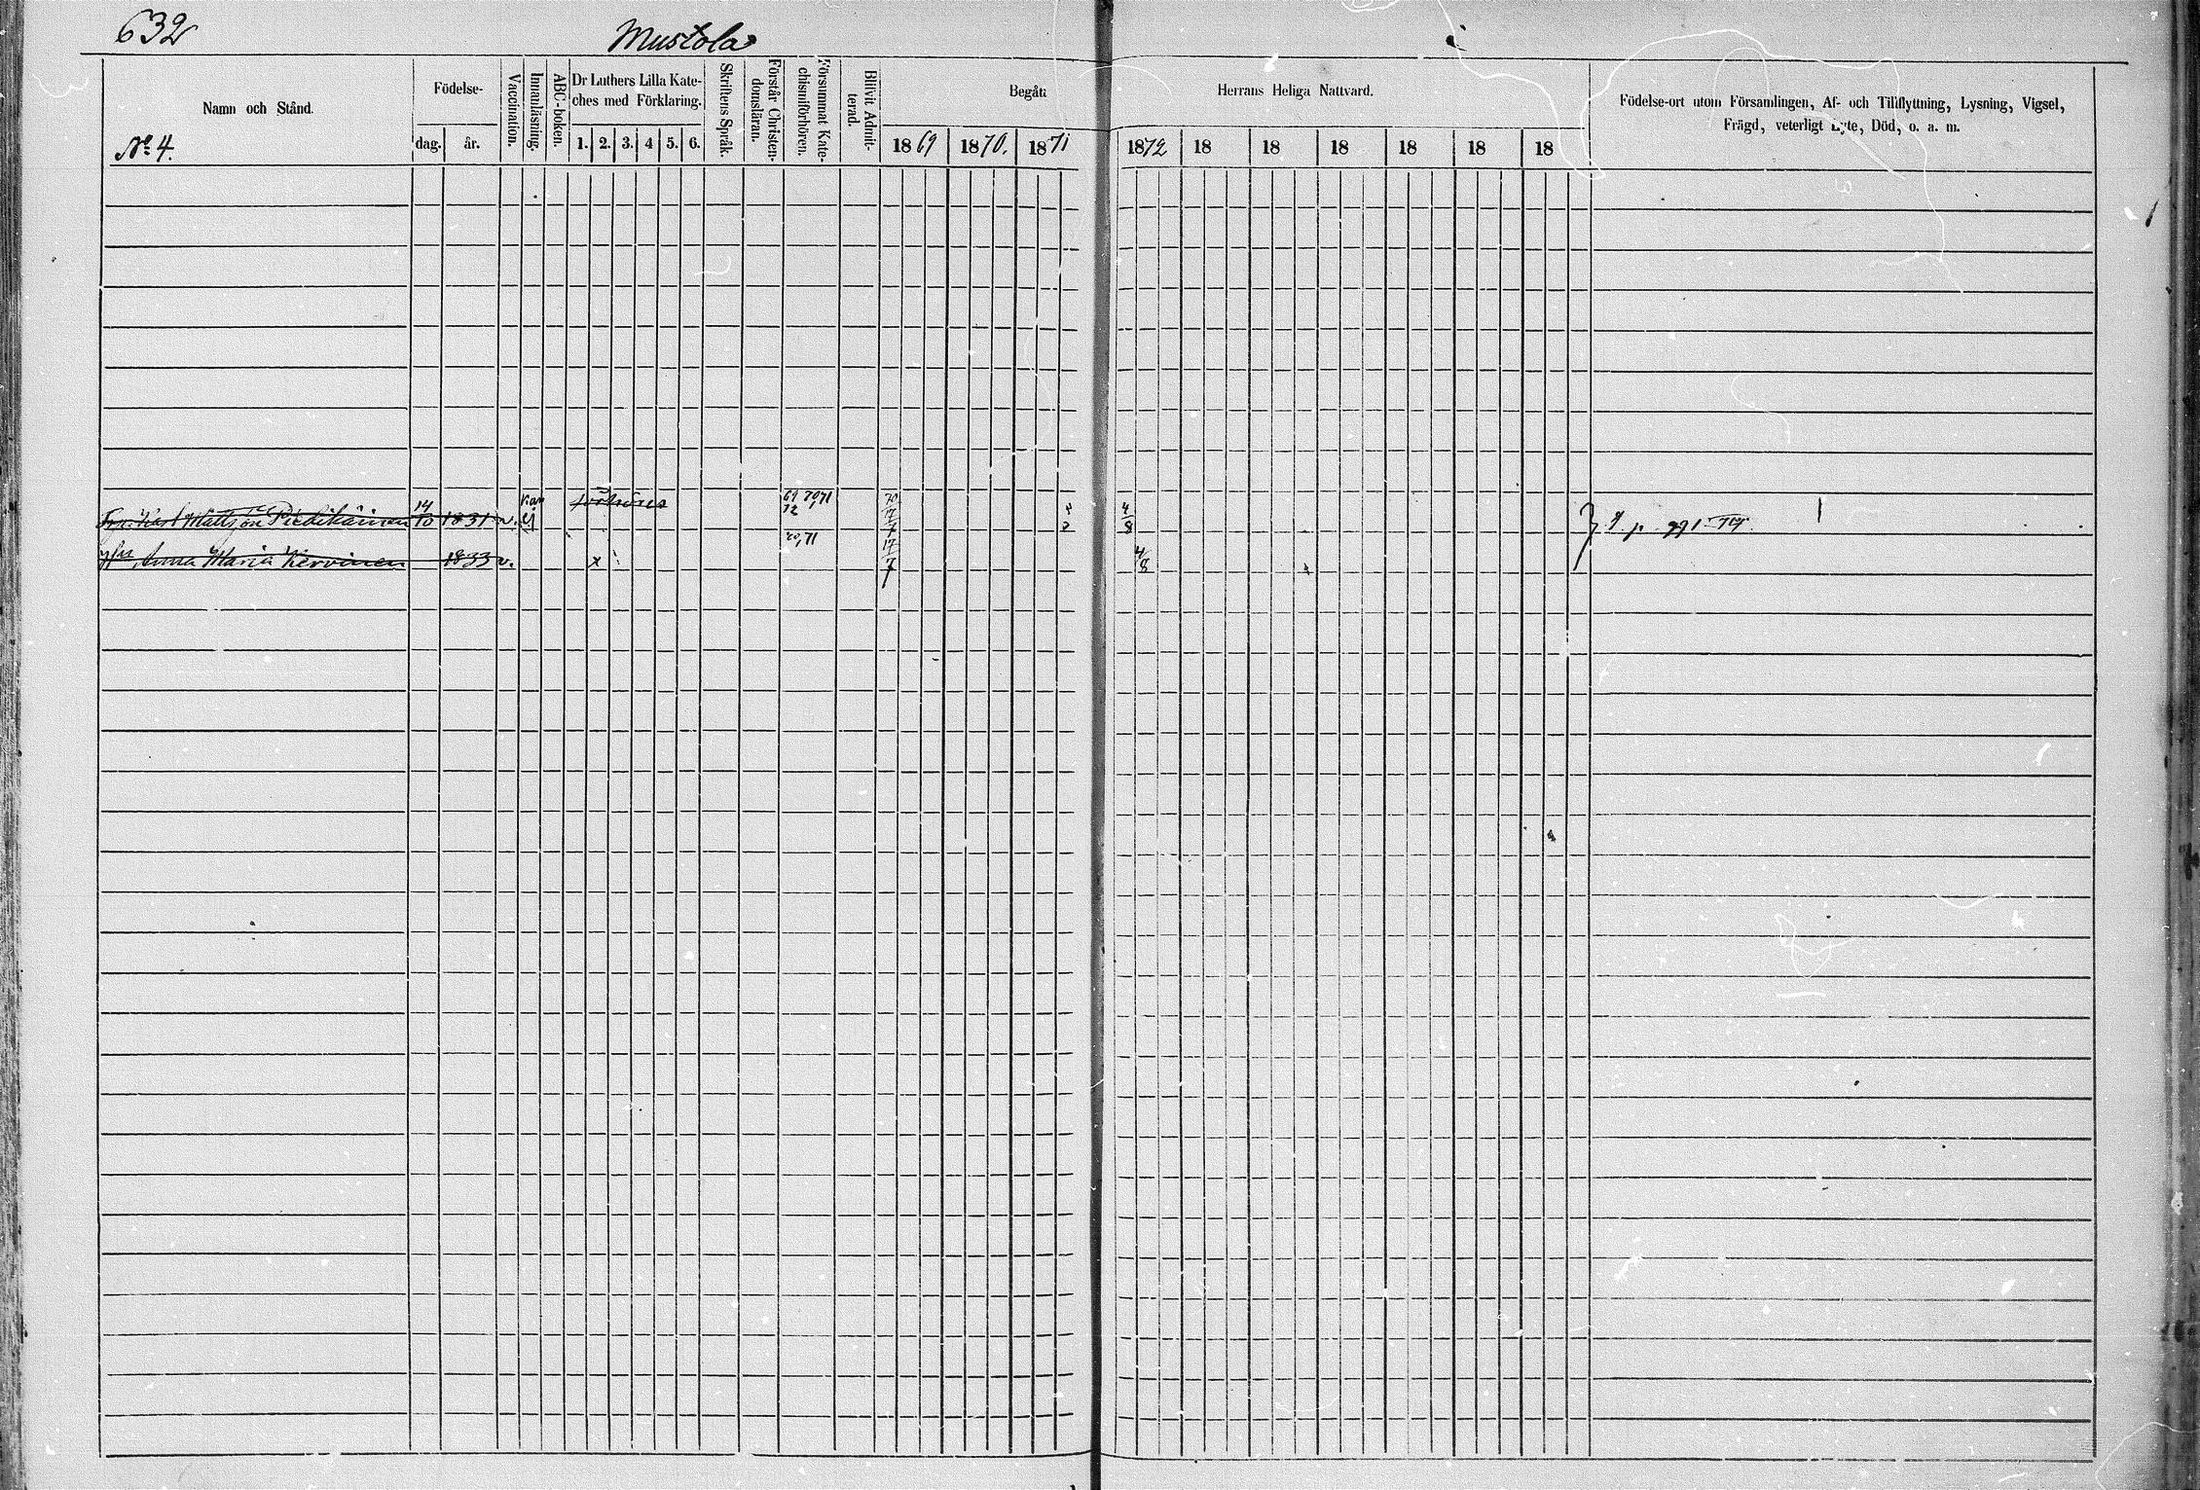 632
Mustola
Namn och Stånd.
Nº 4.
Födelse-
dag.
år.
Vaccination.
Innanläsning.
ABC-boken.
Dr Luthers Lilla Kate-
ches med Förklaring.
1. 2. 3. 4 5. 6.
Skriftens Språk.
Förstår Christen-
domsläran.
Försummat Kate-
chismiförhören.
Blifvit Admit-
terad.
Begått
1869 1870. 1871
Herrans Heliga Nattvard.
1872 18 18 18 18 18 18
Födelse-ort utom Församlingen, Af- och Tillflyttning, Lysning, Vigsel,
Frägd, veterligt Lyte, Död, o. a. m.
Mattsson 14/10 1831 v. 69 70 71 72 17/7 4/8
Anna Maria Kervinen 1833 v. x 70,71 17/7 4/8